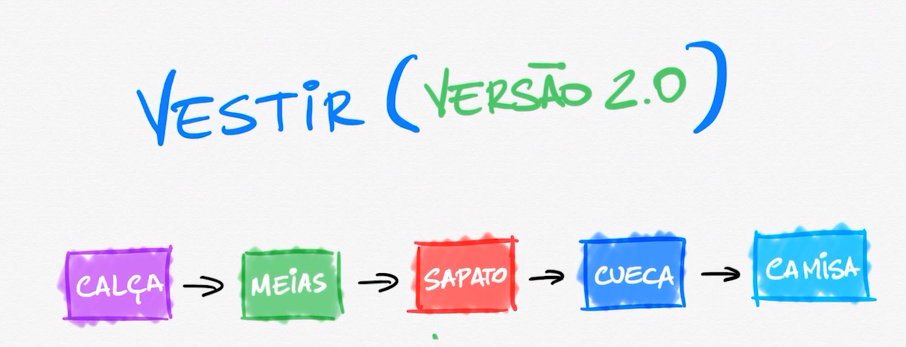 VESTIR (VERSÃO 2.0)
CALÇA → MEIAS → SAPATO → CUECA → CAMISA